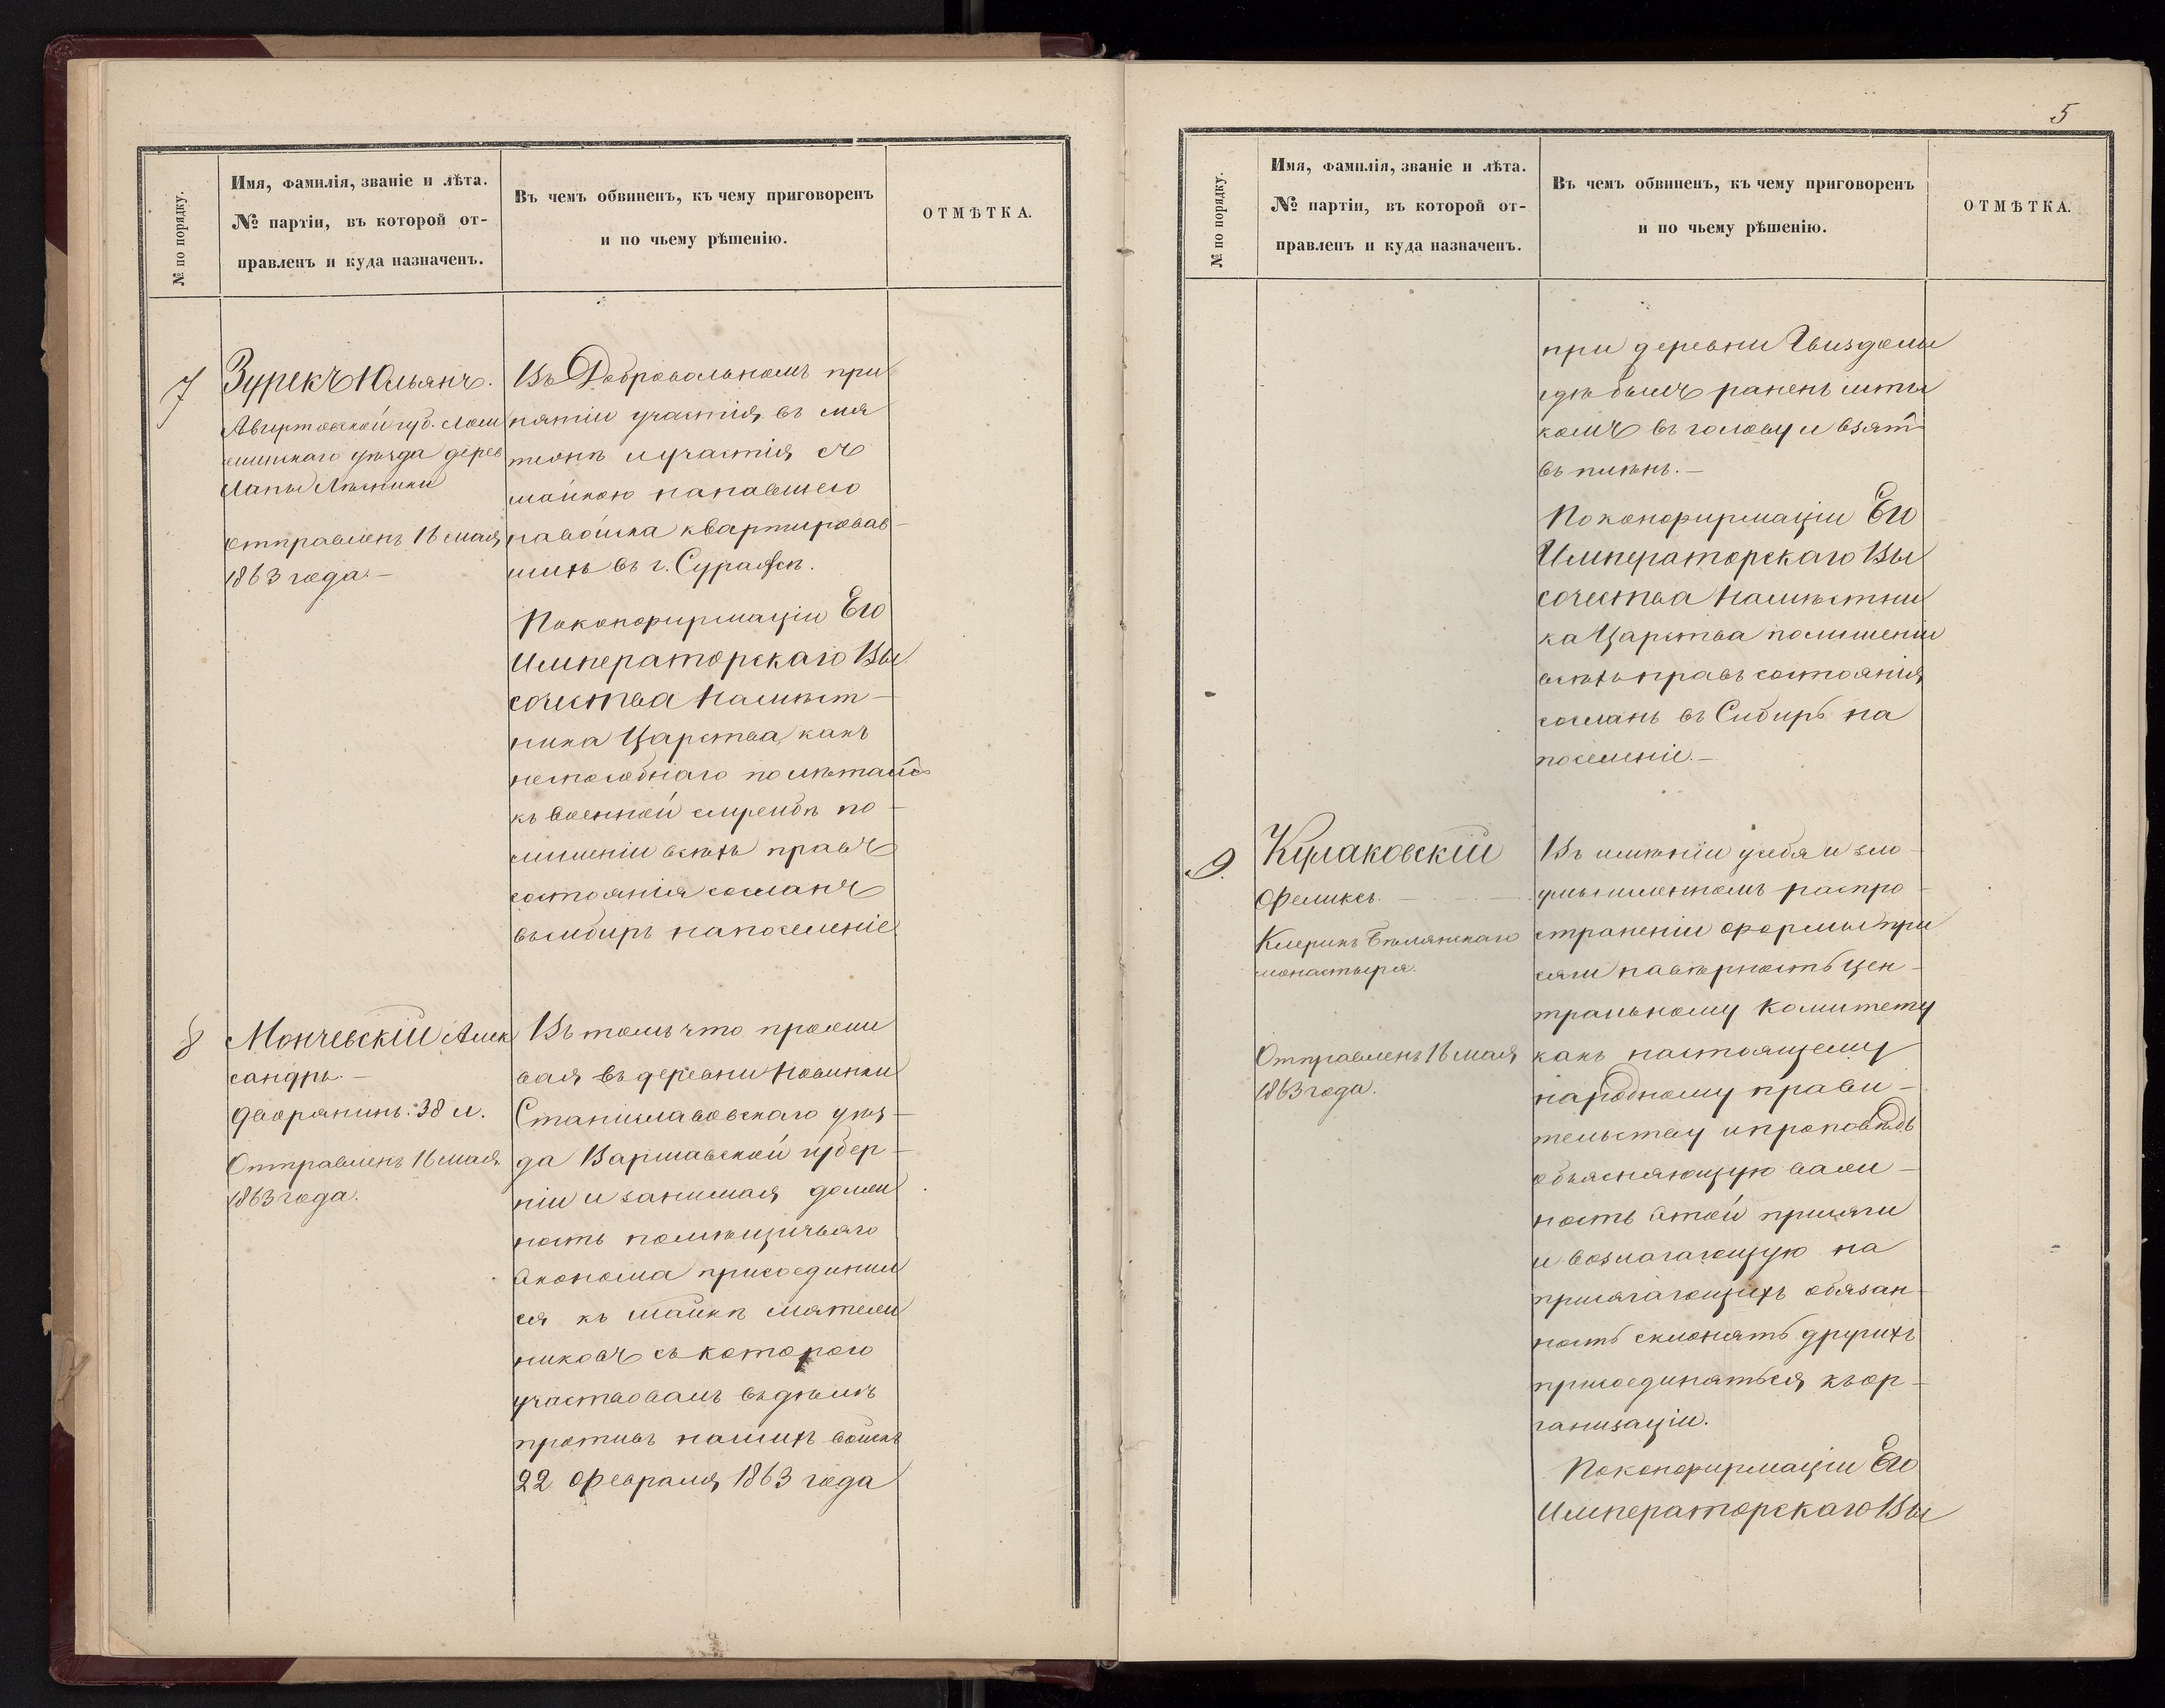 № по порядку.
Имя, фамилія, званіе и лѣта.
№ партіи, въ которой от-
правленъ и куда назначенъ.
Въ чемъ обвиненъ, къ чему приговоренъ
и по чьему рѣшенію.
ОТМѢТКА.
7
Зурекъ Юльянъ.
Августовской губ. Лом
жинскаго уѣзда дерев
Лапы
Отправленъ 16 мая
1863 года.—
Въ Добровольномъ при
нятіи участія въ мя
тежѣ и участія съ
шайкою напавшею
на войска квартировав-
шихъ въ г. Суражѣ.
По конфирмаціи Его
Императорскаго Вы
сочества Намѣст-
ника Царства, какъ
неспособнаго по лѣтамъ
къ военной службѣ по-
лишеніи всѣхъ правъ
состоянія сосланъ
въ сибирь на поселеніе
8
Мончевскій Алек
сандръ.—
дворянинъ: 38 л.
Отправленъ 16 мая
1863 года.
Въ томъ что прожи
вая въ деревни Новинки
Станиславовскаго уѣз-
да Варшавской губер-
ніи и занимая долж
ность помѣщичьяго
эконома присоединил
ся къ шайкѣ мятеж
никовъ съ которою
участвовалъ въ дѣлѣ
противъ нашихъ войскъ
22 февраля 1863 года
5
№ по порядку.
Имя, фамилія, званіе и лѣта.
№ партіи, въ которой от-
правленъ и куда назначенъ.
Въ чемъ обвиненъ, къ чему приговоренъ
и по чьему рѣшенію.
ОТМѢТКА.
при деревни
гдѣ былъ раненъ шты
комъ въ голову и взятъ
въ плѣнъ.—
По конфирмаціи Его
Императорскаго Вы
сочества Намѣстни
ка Царства по лишеніи
всѣхъ правъ состоянія
сосланъ въ Сибирь на
поселеніе.—
9.
Кулаковскій
Феликсъ.
Клерикъ Бѣлянскаго
монастыря.
Отправленъ 16 мая
1863 года.
Въ имѣніи у себя и зло-
умышленномъ распро-
страненіи формы при
сяги на вѣрность Цен-
тральному Комитету
какъ настоящему
народному прави-
тельству и проповѣдь
объясняющую важ-
ность этой присяги
и возлагающую на
присягающихъ обязан-
ность склонять другихъ
присоединяться къ ор-
ганизаціи.
По конфирмаціи Его
Императорскаго Вы